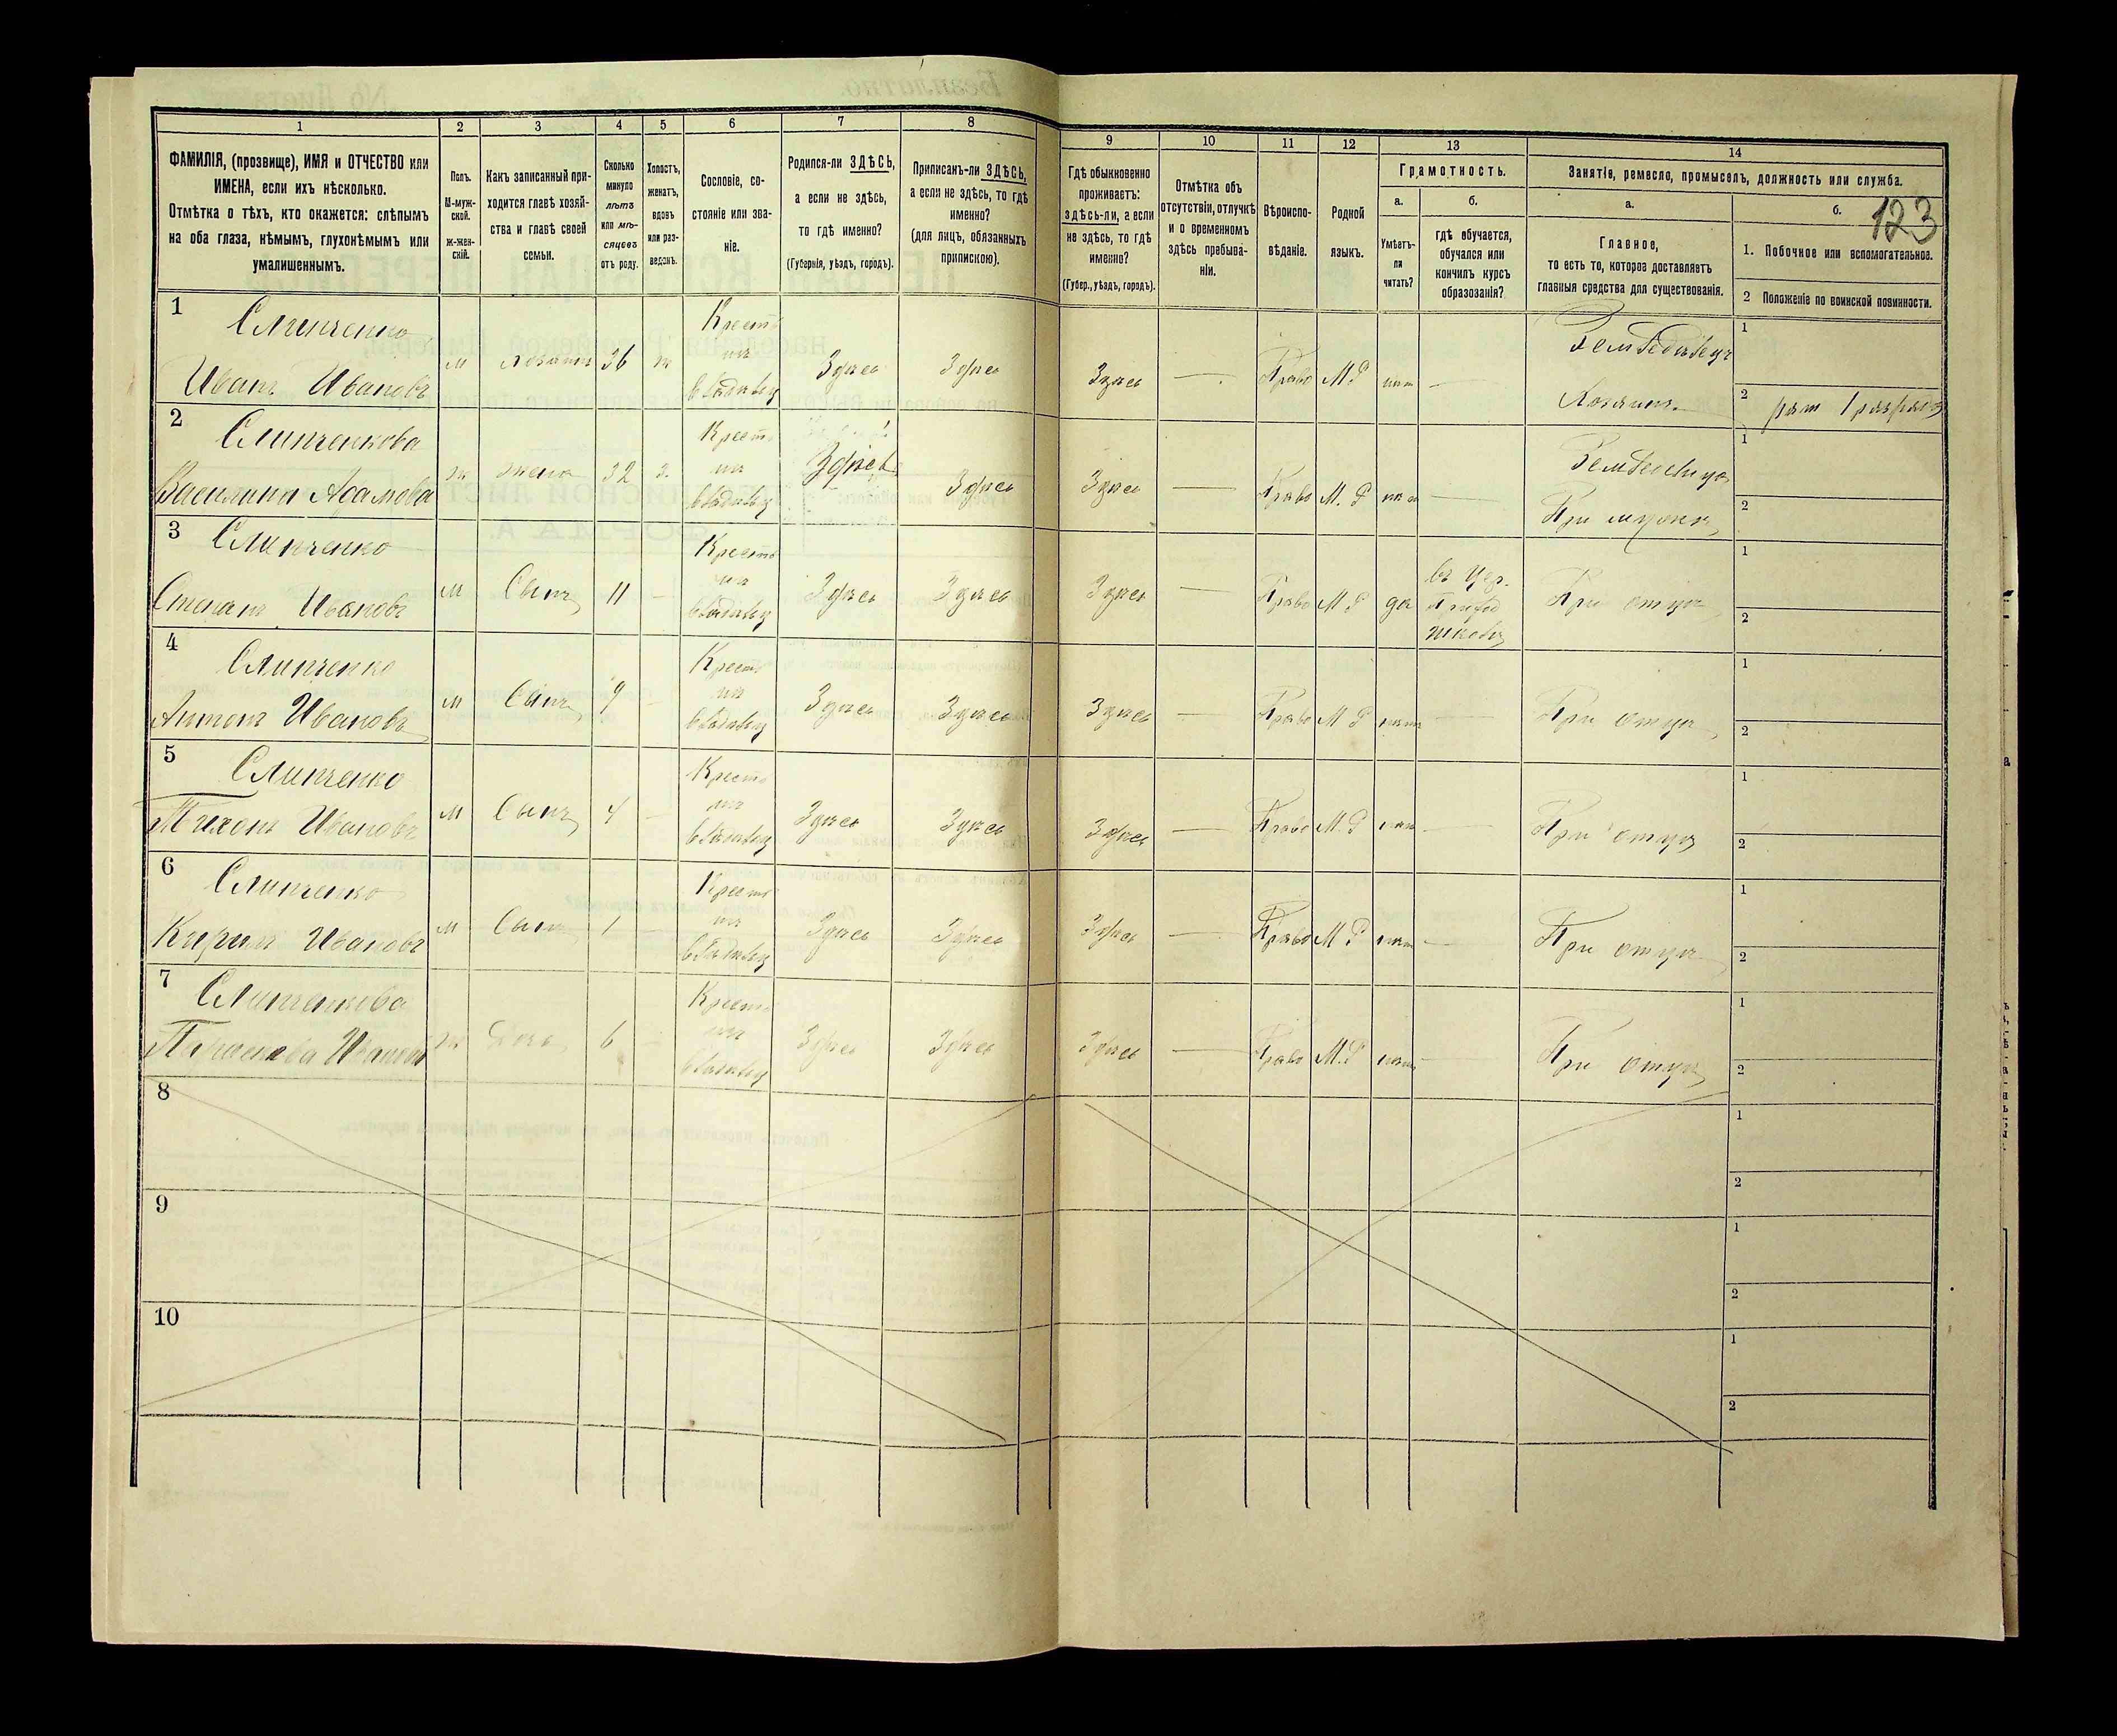 123
1
2
3
4
5
6
7
8
9
10
11
12
13
14
ФАМИЛІЯ, (прозвище), ИМЯ и ОТЧЕСТВО или
ИМЕНА, если ихъ нѣсколько.
Отмѣтка о тѣхъ, кто окажется: слѣпымъ
на оба глаза, нѣмымъ, глухонѣмымъ или
умалишеннымъ.
Полъ.
М-муж-
ской.
ж-жен-
скій.
Какъ записанный при-
ходится главѣ хозяй-
ства и главѣ своей
семьи.
Сколько
минуло
лѣтъ
или мѣ-
сяцевъ
отъ роду.
Холостъ,
женатъ,
вдовъ
или раз-
веденъ.
Сословіе, со-
стояніе или зва-
ніе.
Родился-ли ЗДѢСЬ,
а если не здѣсь,
то гдѣ именно?
(Губернія, уѣздъ, городъ).
Приписанъ-ли ЗДѢСЬ,
а если не здѣсь, то гдѣ
именно?
(для лицъ, обязанныхъ
припискою).
Гдѣ обыкновенно
проживаетъ:
здѣсь-ли, а если
не здѣсь, то гдѣ
именно?
(Губер., уѣздъ, городъ).
Отмѣтка объ
отсутствіи, отлучкѣ
и о временномъ
здѣсь пребыва-
ніи.
Вѣроиспо-
вѣданіе.
Родной
языкъ.
Грамотность.
а.
Умѣетъ-
ли
читать?
б.
гдѣ обучается,
обучался или
кончилъ курсъ
образованія?
Занятіе, ремесло, промыселъ, должность или служба.
а.
Главное,
то есть то, которое доставляетъ
главныя средства для существованія.
б.
1. Побочное или вспомогательное.
2 Положеніе по воинской повинности.
1
Слипченко
Иванъ Ивановъ
м
хозяинъ
36
ж
Крестья
нъ
владѣлец
Здѣсь
Здѣсь
Здѣсь
Право
М Р
нѣтъ
Земледѣлец
Хозяинъ
1
2 рат 1 разряд
2
Слипченкова
Василина Адамова
ж
жена
32
з.
Крестья
нъ
владѣлец
Здѣсь
Здѣсь
Здѣсь
Право
М. Р
нѣт
При мужѣ
1
2
3
Слипченко
Степанъ Ивановъ
м
Сынъ
11
Крестья
нъ
владѣлец
Здѣсь
Здѣсь
Здѣсь
Право
М Р
да
въ Цер.
Приход
школѣ
При отцѣ
1
2
4
Слипченко
Антонъ Ивановъ
м
Сынъ
9
Крестья
нъ
владѣлец
Здѣсь
Здѣсь
Здѣсь
Право
М Р
нѣтъ
При отцѣ
1
2
5
Слипченко
Тихонъ Ивановъ
м
Сынъ
4
Крестья
нъ
владѣлец
Здѣсь
Здѣсь
Здѣсь
Право
М Р
нѣт
При отцѣ
1
2
6
Слипченко
Кирилъ Ивановъ
м
Сынъ
1
Крестья
нъ
владѣлец
Здѣсь
Здѣсь
Здѣсь
Право
М Р
нѣт
При отцѣ
1
2
7
Слипченкова
Параскева Иванова
ж
Дочь
6
Крестья
нъ
владѣлец
Здѣсь
Здѣсь
Здѣсь
Право
М. Р
нѣтъ
При отцѣ
1
2
8
1
2
9
1
2
10
1
2